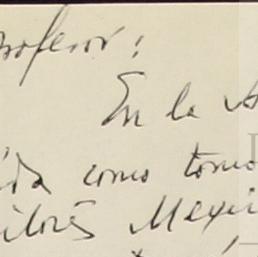 rofesor:
En la A
ida como tomo
itores Mexi